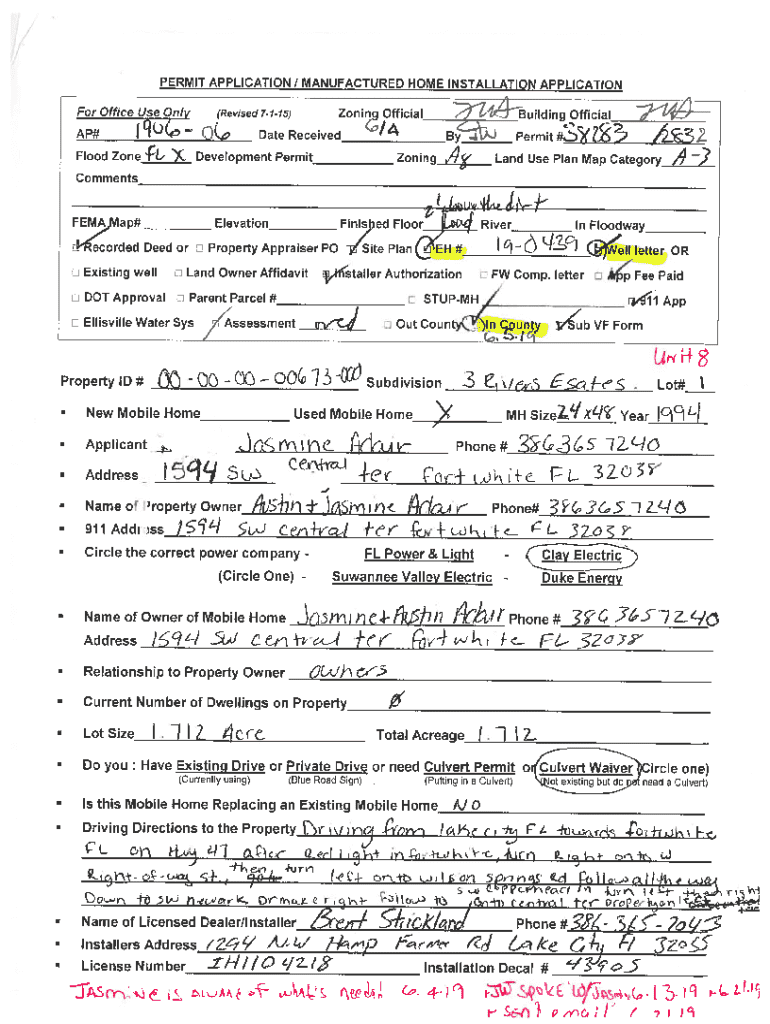 PERMIT APPLICATION / MANUFACTURED HOME INSTALLATION APPLICATION
For Office Use Only (Revised 7-1-15) Zoning Official Building Official
AP# 1906-06 Date Received 6/4 By JW Permit # 38283 / 2832
Flood Zone FL X Development Permit Zoning Ag Land Use Plan Map Category A-3
Comments
above the dirt
FEMA Map# Elevation Finished Floor Load River In Floodway
Recorded Deed or □ Property Appraiser PO □ Site Plan □ EH # 19-0439 □ Well letter OR
□ Existing well □ Land Owner Affidavit □ Installer Authorization □ FW Comp. letter □ App Fee Paid
□ DOT Approval □ Parent Parcel # □ STUP-MH □ 911 App
□ Ellisville Water Sys □ Assessment □ Out County □ In County □ Sub VF Form
6.5.19
Unit 8
Property ID # 00-00-00-00673-000 Subdivision 3 Rivers Esates. Lot# 1
▪ New Mobile Home Used Mobile Home X MH Size 24 x48 Year 1994
▪ Applicant Jasmine Adair Phone # 386 365 7240
▪ Address 1594 SW central ter fort white FL 32038
▪ Name of Property Owner Austin + Jasmine Adair Phone# 386 365 7240
▪ 911 Address 1594 SW central ter fort white FL 32038
▪ Circle the correct power company - FL Power & Light - Clay Electric
(Circle One) - Suwannee Valley Electric - Duke Energy
▪ Name of Owner of Mobile Home Jasmine + Austin Adair Phone # 386 365 7240
Address 1594 SW central ter fort white FL 32038
▪ Relationship to Property Owner owners
▪ Current Number of Dwellings on Property Ø
▪ Lot Size 1.712 Acre Total Acreage 1.712
▪ Do you : Have Existing Drive or Private Drive or need Culvert Permit or Culvert Waiver (Circle one)
(Currently using) (Blue Road Sign) (Putting in a Culvert) (Not existing but do not need a Culvert)
▪ Is this Mobile Home Replacing an Existing Mobile Home NO
▪ Driving Directions to the Property Driving from lake city FL towards fort white
FL on Hwy 47 after Red light in fortwhite, turn Right onto W
Right-of-way st., then turn left onto wilson springs Rd follow all the way
SW copperhead ln turn left then right
Down to SW newark Dr make right follow to onto central ter property on left
▪ Name of Licensed Dealer/Installer Brent Strickland Phone # 386-365-7043
▪ Installers Address 1294 N.W Hamp Farmer Rd Lake City Fl 32055
▪ License Number IH1104218 Installation Decal # 43905
JASmine is aware of what's needed 6.4.19 JW spoke w/ Jasmin 6.13.19 + 6.21.19
+ sent email